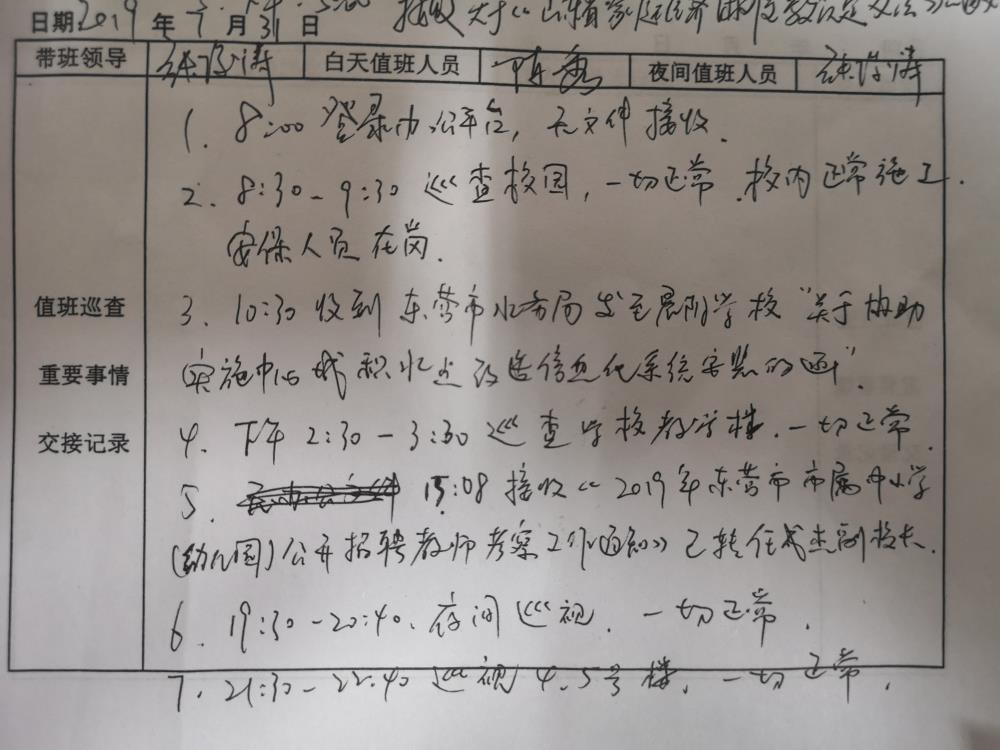 日期2019年7月31日 接收关于《山东省家庭经济困难
带班领导 白天值班人员 夜间值班人员
1. 8:00 登录办公平台，无文件接收.
2. 8:30-9:30 巡查校园，一切正常.校内正常施工.
安保人员在岗.
值班巡查
3. 10:30 收到东营市水务局发至晨阳学校“关于协助
重要事情
实施中心城积水点改造信息化系统安装的函”.
交接记录
4. 下午2:30-3:30 巡查学校教学楼.一切正常.
5. 15:08 接收《2019年东营市市属中小学
(幼儿园)公开招聘教师考察工作通知》已转任武杰副校长.
6. 19:30-20:40. 夜间巡视. 一切正常.
7. 21:30-22:40 巡视4.5号楼. 一切正常.